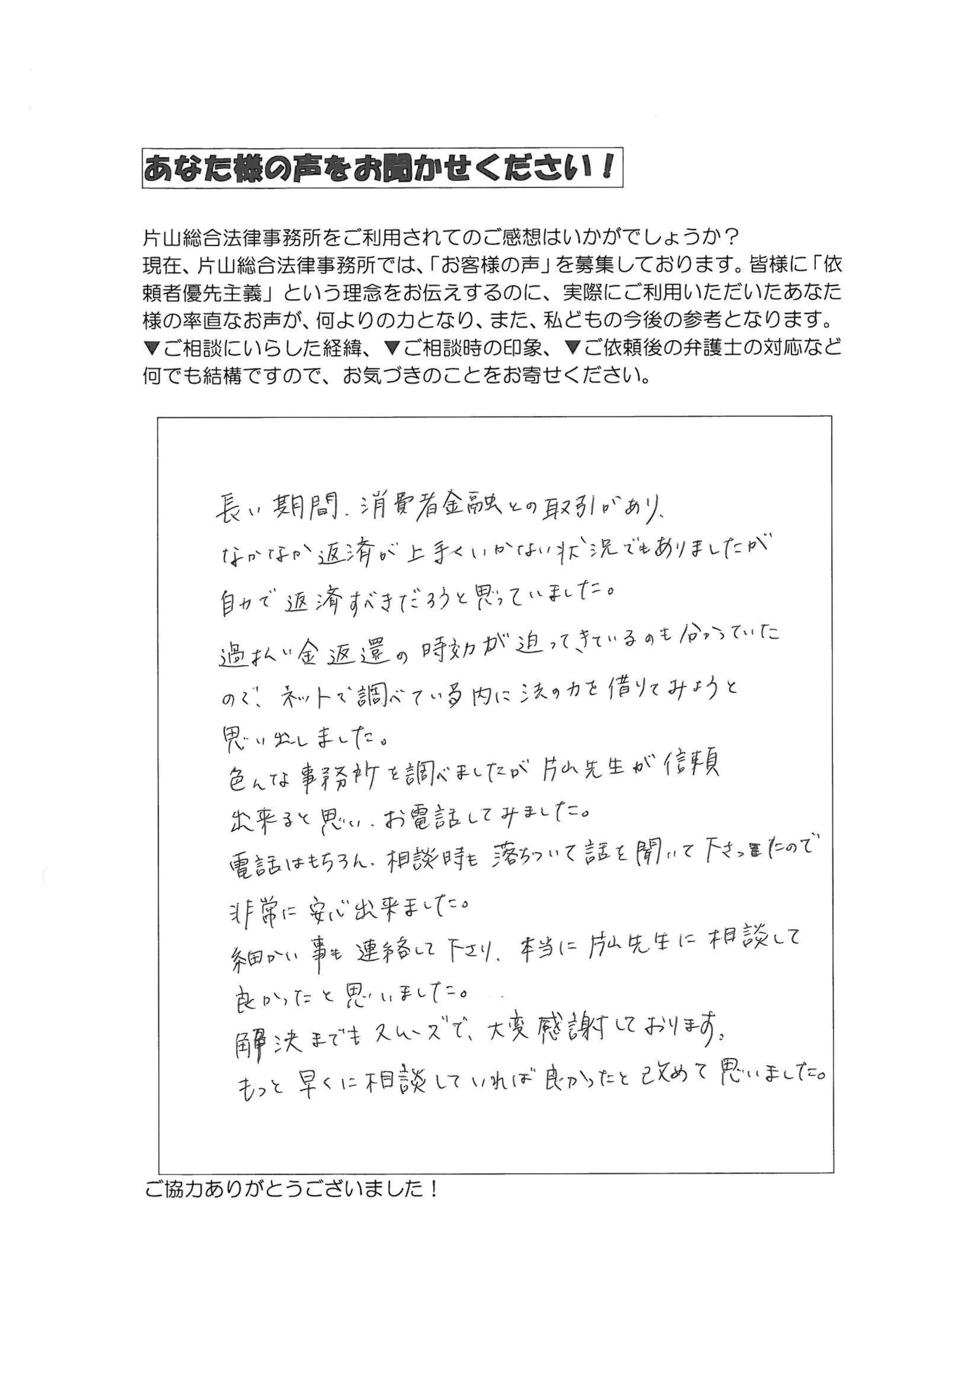 あなた様の声をお聞かせください！
片山総合法律事務所をご利用されてのご感想はいかがでしょうか？
現在、片山総合法律事務所では、「お客様の声」を募集しております。皆様に「依
頼者優先主義」という理念をお伝えするのに、実際にご利用いただいたあなた
様の率直なお声が、何よりの力となり、また、私どもの今後の参考となります。
▼ご相談にいらした経緯、▼ご相談時の印象、▼ご依頼後の弁護士の対応など
何でも結構ですので、お気づきのことをお寄せください。
長い期間、消費者金融との取引があり、
なかなか返済が上手くいかない状況でもありましたが
自力で返済すべきだろうと思っていました。
過払い金返還の時効が迫ってきているのも分かっていた
ので、ネットで調べている内に法の力を借りてみようと
思い出しました。
色んな事務所を調べましたが片山先生が信頼
出来ると思い、お電話してみました。
電話はもちろん、相談時も落ちついて話を聞いて下さったので
非常に安心出来ました。
細かい事も連絡して下さり、本当に片山先生に相談して
良かったと思いました。
解決までもスムーズで、大変感謝しております。
もっと早くに相談していれば良かったと改めて思いました。
ご協力ありがとうございました！